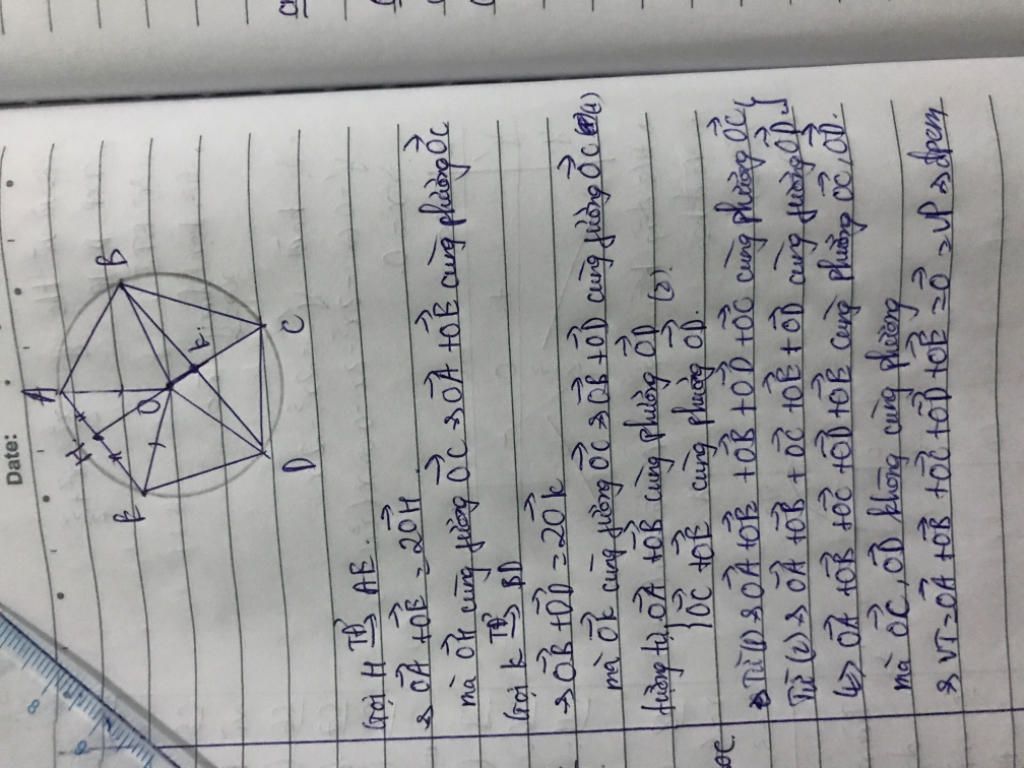 Date:
A
B
E
H
O
K
D
C
Gọi H TĐ AE.
→ OA + OE = 2OH
mà OH cùng phương OC → OA + OE cùng phương OC
Gọi K TĐ BD
→ OB + OD = 2OK
mà OK cùng phương OC → OB + OD cùng phương OC (1)
tương tự, OA + OB cùng phương OD (2).
{OC + OE cùng phương OD.
Từ (1) → OA + OE + OB + OD + OC cùng phương OC }
Từ (2) → OA + OB + OC + OE + OD cùng phương OD. }
↳ OA + OB + OC + OD + OE cùng phương OC, OD.
mà OC, OD không cùng phương
→ VT = OA + OB + OC + OD + OE = O = VP → đpcm
8
9